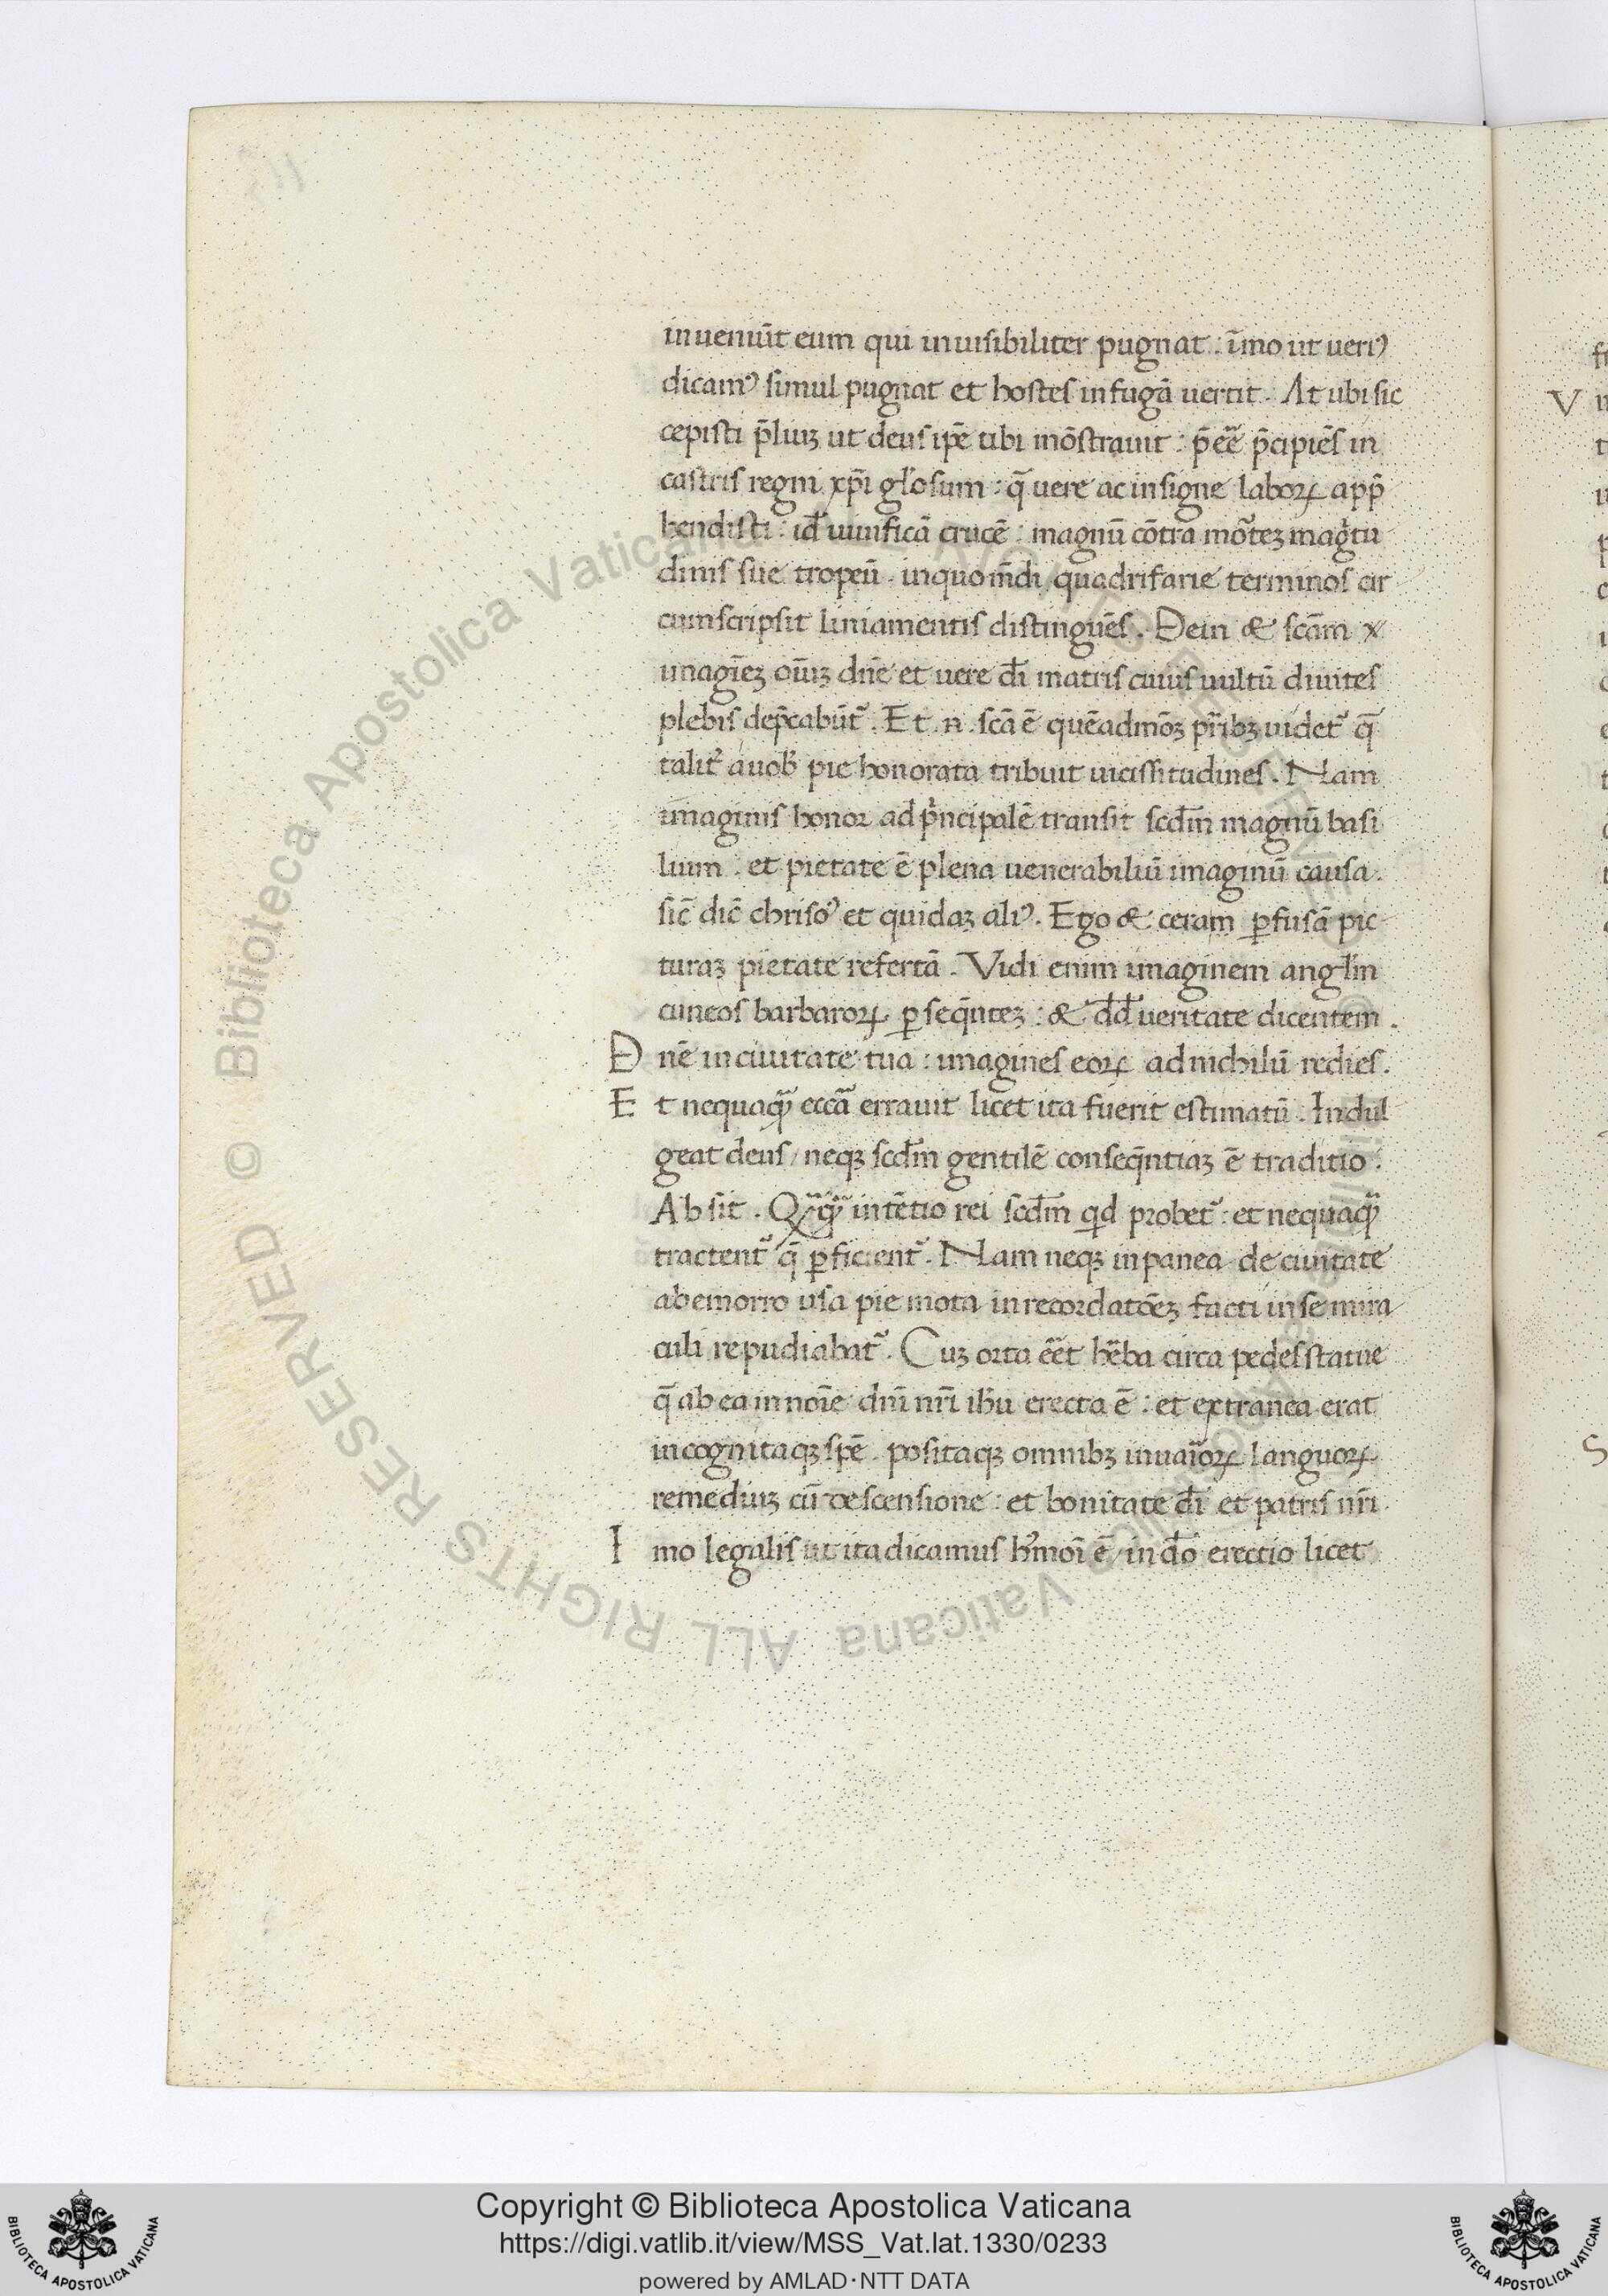 inueniūt eum qui inuisibiliter pugnat . īmo ut ueriꝰ
dicamꝰ simul pugnat et hostes in fugā uertit . At ubi sic
cepisti p̄liuꝫ ut deus ip̄e tibi mōstrauit : p̄ēē p̄cipiēs in
castris regni xp̄i gl'osum : q̄ uere ac insigne laboꝝ app̄
hendisti : id̄ uiuificā crucē : magnū cōtra mōtez magͥtu
dinis sue tropeū . inquo m̄di quadrifarie terminos cir
cumscripsit liniamentis distinguēs . Dein & scām
imagīeꝫ oīuꝫ dn̄e et uere dī matris cuius uultū diuites
plebis dep̄cabūt᷑ . Et .n. scā ē quēadmōꝫ pr̄ibꝫ uidet᷑ q̄
talit᷑ auob̄ pie honorata tribuit uicissitudines . Nam
imaginis honor ad pͥncipalē transit scd̄m magnū basi
lium : et pietate ē plena uenerabiliū imaginū causa .
sic̄ dic̄ chrisoꝰ et quidaꝫ aliꝰ . Ego & ceram ꝑfusā pic
turaꝫ pietate refertā . Vidi enim imaginem angl'm
cuneos barbaroꝝ ꝑseq̄nteꝫ : & dd̄ ueritate dicentem .
D nē in ciuitate tua : imagines eoꝝ ad nichilū redies .
E t nequaqᷓ eccā errauit licet ita fuerit estimatū . Indul
geat deus / neqꝫ scd̄m gentilē conseq̄ntiaꝫ ē traditio .
Absit . Qᷓqᷓ intētio rei scd̄m qd probet᷑ : et nequaqᷓ
tractent᷑ q̄ ꝑficient᷑ . Nam neqꝫ in panea de ciuitate
abemorro usa pie mota in recordatōeꝫ facti in se mira
culi repudiabat᷑ . Cuꝫ orta ēēt h̄ba circa pedes statue
q̄ ab ea in noīe dn̄i nr̄i ih̄u erecta ē : et extranea erat
incognitaqꝫ spē . positaqꝫ omnibꝫ inuaīoꝝ languoꝝ
remediuꝫ cū descensione : et bonitate dī et patris nr̄i .
I mo legalis ut ita dicamus h᷑moī ē / in dō erectio licet
Copyright © Biblioteca Apostolica Vaticana
https://digi.vatlib.it/view/MSS_Vat.lat.1330/0233
powered by AMLAD·NTT DATA